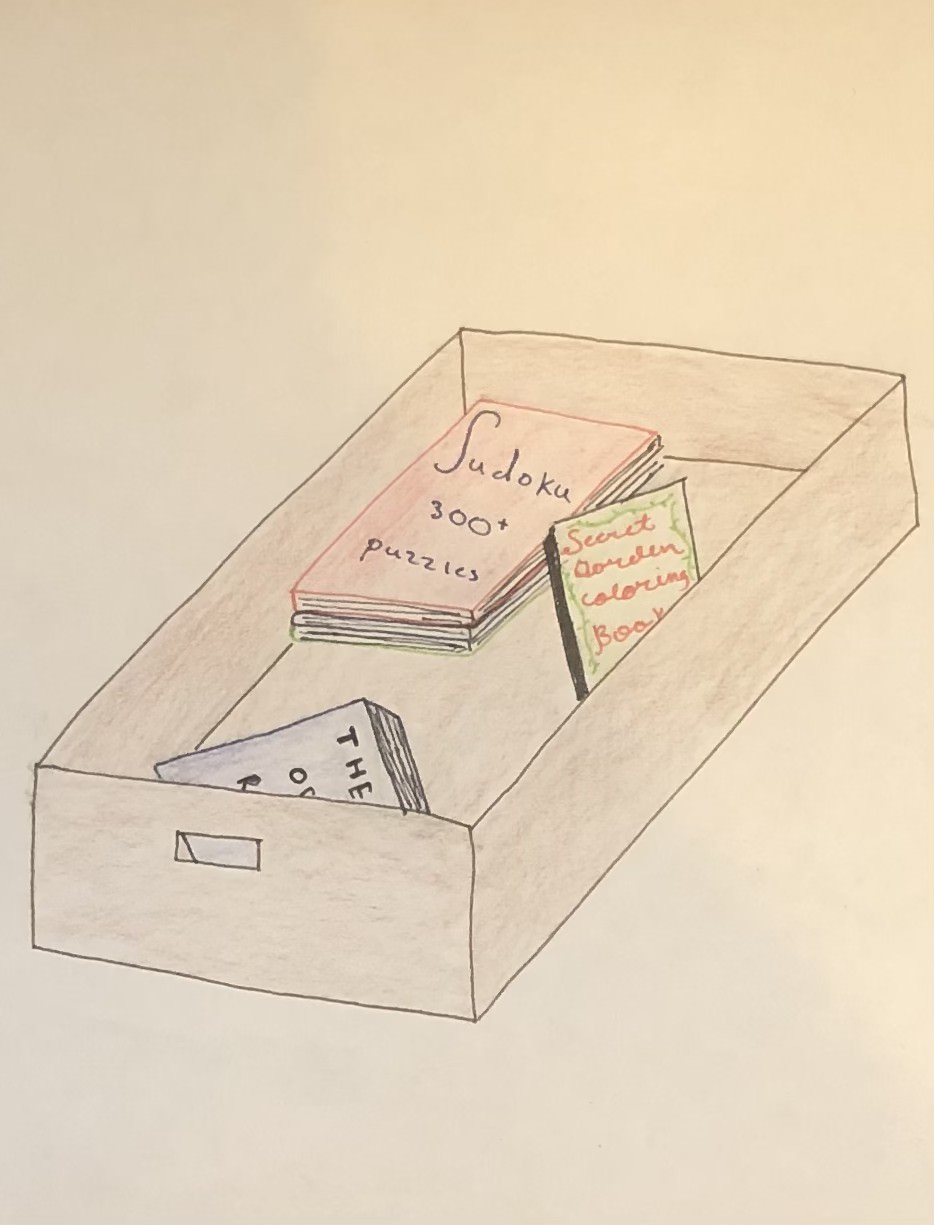 Sudoku
300+
puzzles
Secret
Garden
coloring
Book
THE